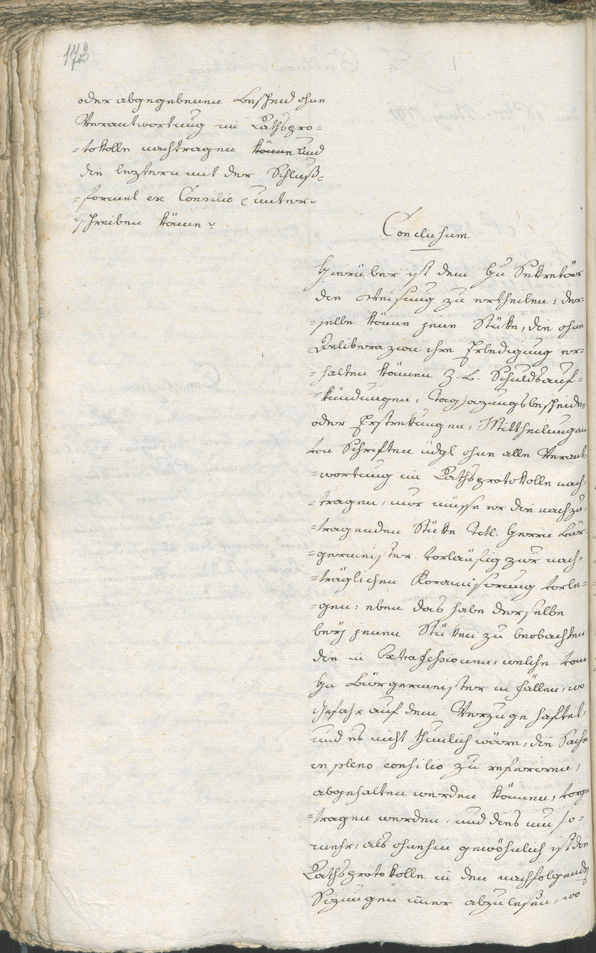 172
oder abgegebenen Bescheid ohne
Verantwortung im Rathspro=
=tokolle nachtragen könne und
die leztern mit der Schluß=
=formel ex Consilio unter=
=schreiben könne?
Conclusum
Hierüber ist dem Hn Sekretär
die Weisung zu ertheilen: der=
=selbe könne jene Stüke, die ohne
Deliberazion ihre Erledigung er=
=halten können z. B. Schuldsauf=
=kündungen, Tagsazungsbescheide
oder Erstrekungen, Mittheilungen
von Schriften udgl ohne alle Verant
=wortung im Rathsprotokolle nach=
=tragen, nur müsse er die nachzu=
=tragenden Stüke Titl. Herrn Bür=
=germeister vorläufig zur nach=
=träglichen Koramisirung vorle=
=gen: eben das habe derselbe
beÿ jenen Stüken zu beobachten
die in Extrasessionen, welche vom
Hn Bürgermeister in Fällen, wo
Gefahr auf dem Verzuge haftet,
und es nicht thunlich wäre, die Sache
in pleno consilio zu referiren,
abgehalten werden können, vorge
=tragen werden, und dies um so=
mehr, als ohnehin gewöhnlich ist die
Rathsprotokolle in den nachfolgenden
Sizungen immer abzulesen, wo